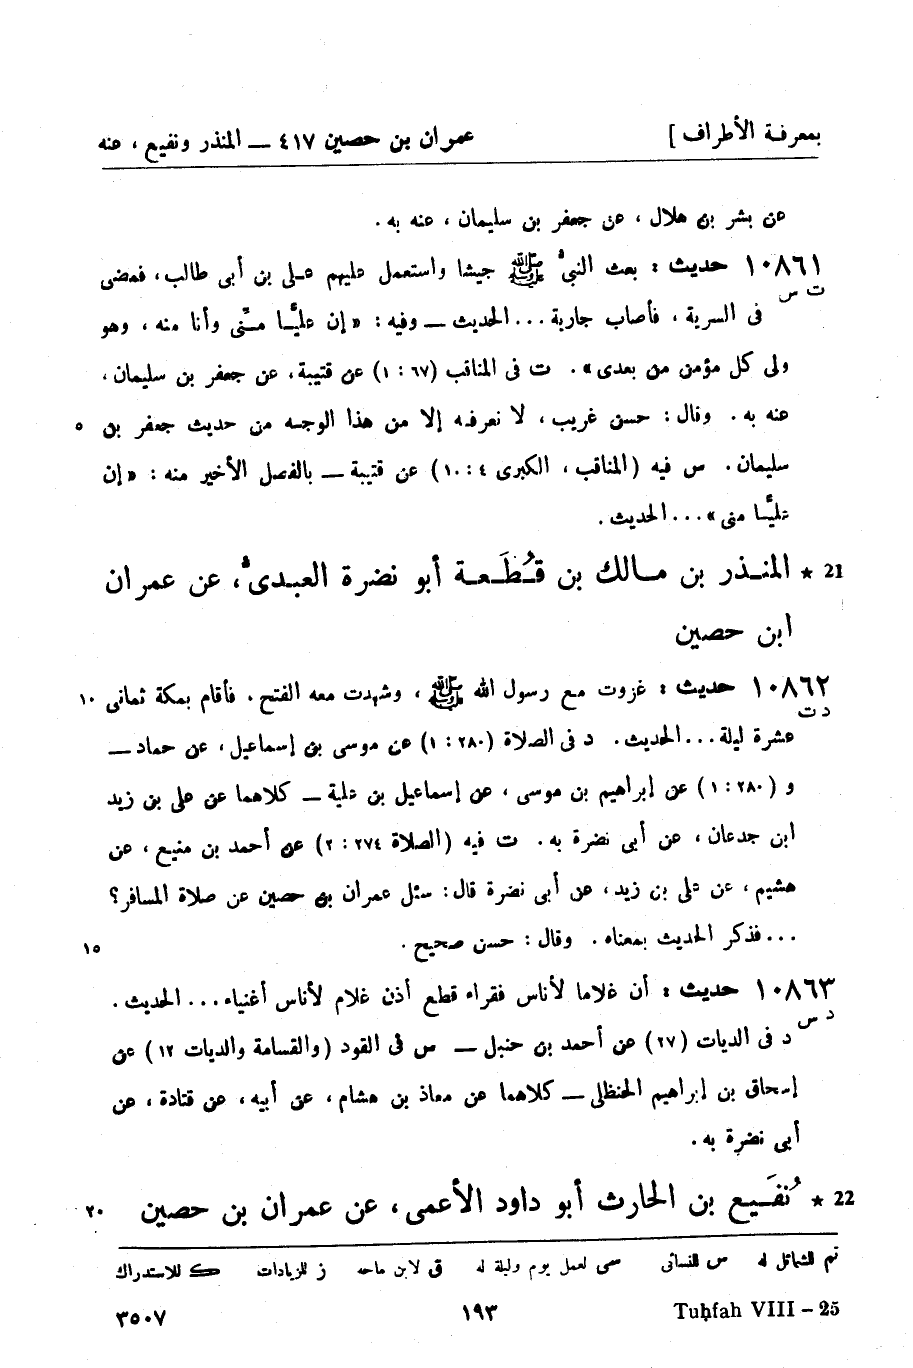 بمعرفة الأطراف ] عمران بن حصين ٤١٧ — المنذر ونفيع ، عنه
عن بشر بن هلال ، عن جعفر بن سليمان ، عنه به .
١٠٨٦١ حديث : بعث النبىّ ﷺ جيشا واستعمل عليهم على بن أبى طالب ، فمضى
ت س
فى السرية ، فأصاب جارية ... الحديث — وفيه : « إن عليًّا منّى وأنا منه ، وهو
ولى كل مؤمن من بعدى » . ت فى المناقب (٦٧ : ١) عن قتيبة ، عن جعفر بن سليمان ،
عنه به . وقال : حسن غريب ، لا نعرفه إلا من هذا الوجه من حديث جعفر بن ٥
سليمان . س فيه (المناقب ، الكبرى ٤ : ١٠) عن قتيبة — بالفصل الأخير منه : « إن
عليًّا منى » ... الحديث .
21 ★ المنذر بن مالك بن قُطَعة أبو نضرة العبدىّ ، عن عمران
ابن حصين
١٠٨٦٢ حديث : غزوت مع رسول الله ﷺ ، وشهدت معه الفتح . فأقام بمكة ثمانى ١٠
د ت
عشرة ليلة ... الحديث . د فى الصلاة (٢٨٠ : ١) عن موسى بن إسماعيل ، عن حماد —
و (٢٨٠ : ١) عن إبراهيم بن موسى ، عن إسماعيل بن علية — كلاهما عن على بن زيد
ابن جدعان ، عن أبى نضرة به . ت فيه (الصلاة ٢٧٤ : ٢) عن أحمد بن منيع ، عن
هشيم ، عن على بن زيد ، عن أبى نضرة قال : سئل عمران بن حصين عن صلاة المسافر ؟
... فذكر الحديث بمعناه . وقال : حسن صحيح . ١٥
١٠٨٦٣ حديث : أن غلاما لأناس فقراء قطع أذن غلام لأناس أغنياء ... الحديث .
د س
د فى الديات (٢٧) عن أحمد بن حنبل — س فى القود (والقسامة والديات ١٢) عن
إسحاق بن إبراهيم الحنظلى — كلاهما عن معاذ بن هشام ، عن أبيه ، عن قتادة ، عن
أبى نضرة به .
22 ★ نُفَيع بن الحارث أبو داود الأعمى ، عن عمران بن حصين ٢٠
تم للشمائل له س للنسائى سى لعمل يوم وليلة له ق لابن ماجه ز للزيادات ك للاستدراك
Tuḥfah VIII – 25 ١٩٣ ٣٥٠٧